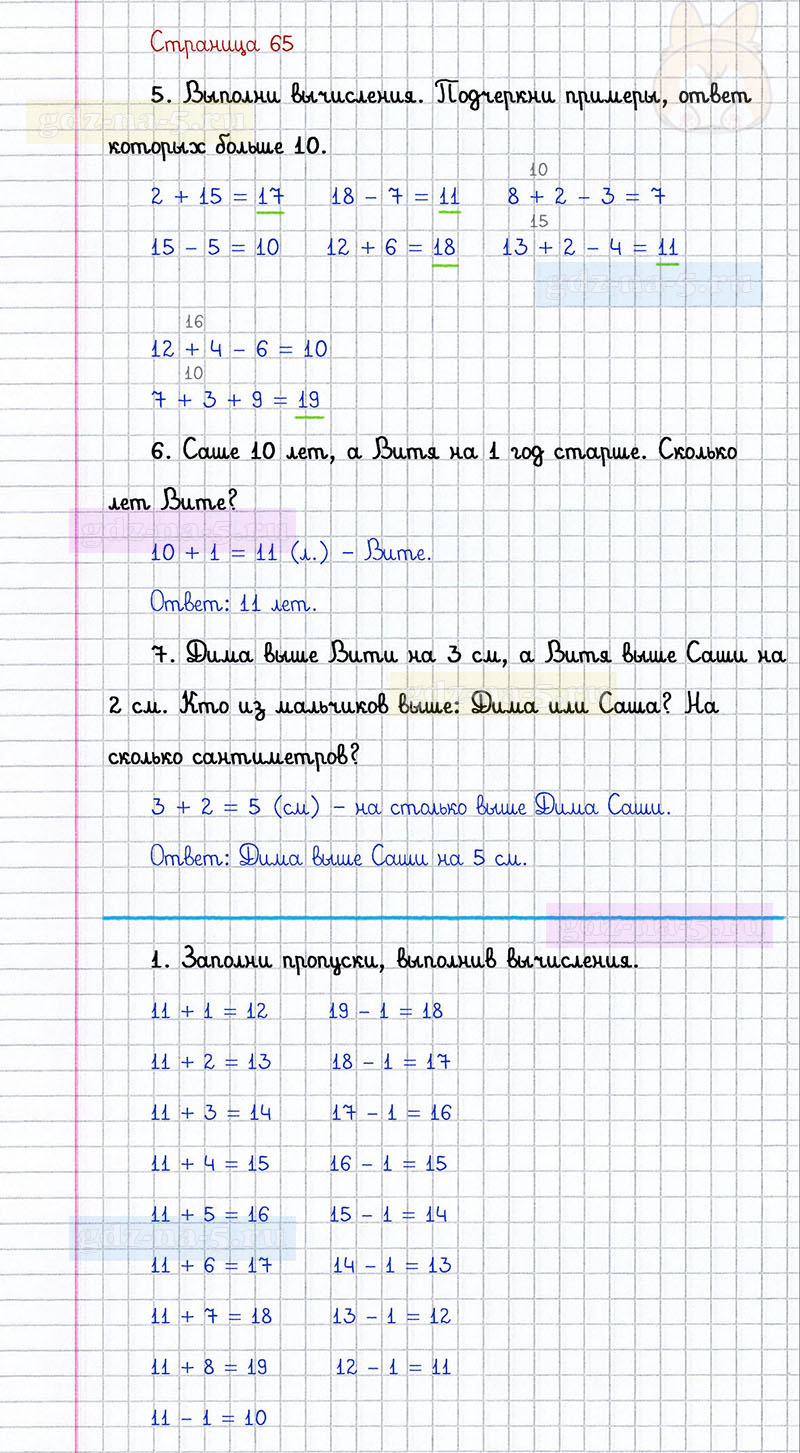 Страница 65
5. Выполни вычисления. Подчеркни примеры, ответ
gdz-na-5.ru
которых больше 10.
10
2 + 15 = 17 18 - 7 = 11 8 + 2 - 3 = 7
15
15 - 5 = 10 12 + 6 = 18 13 + 2 - 4 = 11
gdz-na-5.ru
16
12 + 4 - 6 = 10
10
7 + 3 + 9 = 19
6. Саше 10 лет, а Витя на 1 год старше. Сколько
лет Вите?
gdz-na-5.ru
10 + 1 = 11 (л.) - Вите.
Ответ: 11 лет.
7. Дима выше Вити на 3 см, а Витя выше Саши на
gdz-na-5.ru
2 см. Кто из мальчиков выше: Дима или Саша? На
сколько сантиметров?
3 + 2 = 5 (см) - на столько выше Дима Саши.
Ответ: Дима выше Саши на 5 см.
gdz-na-5.ru
1. Заполни пропуски, выполнив вычисления.
11 + 1 = 12 19 - 1 = 18
11 + 2 = 13 18 - 1 = 17
11 + 3 = 14 17 - 1 = 16
11 + 4 = 15 16 - 1 = 15
11 + 5 = 16 15 - 1 = 14
gdz-na-5.ru
11 + 6 = 17 14 - 1 = 13
11 + 7 = 18 13 - 1 = 12
11 + 8 = 19 12 - 1 = 11
11 - 1 = 10